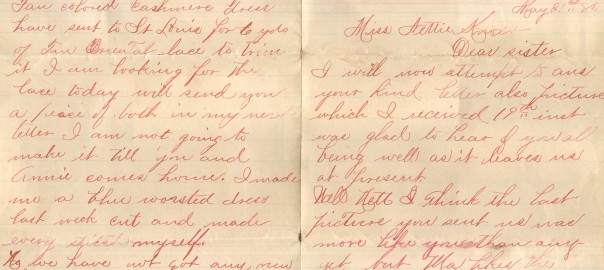 Tan colored Cashmere dress
have sent to St Louis for 6 yds
of Tan Oriental lace to trim
it I am looking for the
lace today will send you
a piece of both in my next
letter I am not going to
make it till you and
Annie comes home. I made
me a blue worsted dress
last week cut and made
every stitch myself.
we have not got any new
May
Miss Nettie
Dear sister
I will now attempt to ans
your kind letter also picture
which I received 19th inst
was glad to hear of you all
being well as it leaves us
at present.
Well Nett I think the last
picture you sent us was
more like you than any
yet but